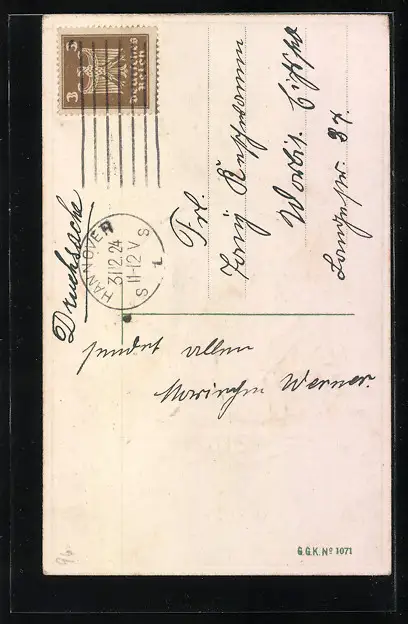 3 3
Deutsches Reich
HANNOVER
31.12.24
11-12 V
S S
1
Drucksache
Frl.
Worbis
Langestr 37.
sendet allen
Werner.
G.G.K. Nº 1071
96